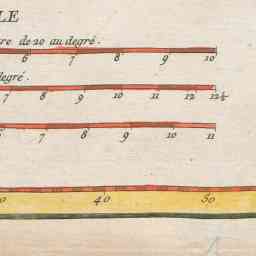 LE
re de 20 au degré.
6 7 8 9 10
degré.
7 8 9 10 11 12 12½
7 8 9 10 11
40 50